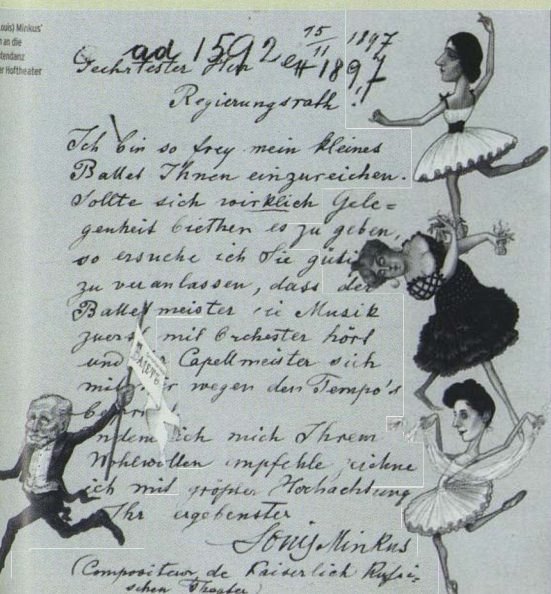 ouis) Minkus'
n an die
tendanz
er Hoftheater
ad 1592
15/11 1897
1897
Geehrtester Herr
Regierungsrath!
Ich bin so frey mein kleines
Ballet Ihnen einzureichen.
Sollte sich wirklich Gele=
genheit biethen es zu geben,
so ersuche ich Sie güti
zu veranlassen, dass der
Balletmeister ie Musik
zuerst mit Orchester hört
und Capellmeister sich
mit r wegen den Tempo's
be
ndem ich mich Ihrem
Wohlwollen empfehle zeichne
ich mit größter Hochachtung
Ihr ergebenster
Louis Minkus
(Compositeur de Kaiserlich Rußi-
schen Theater)